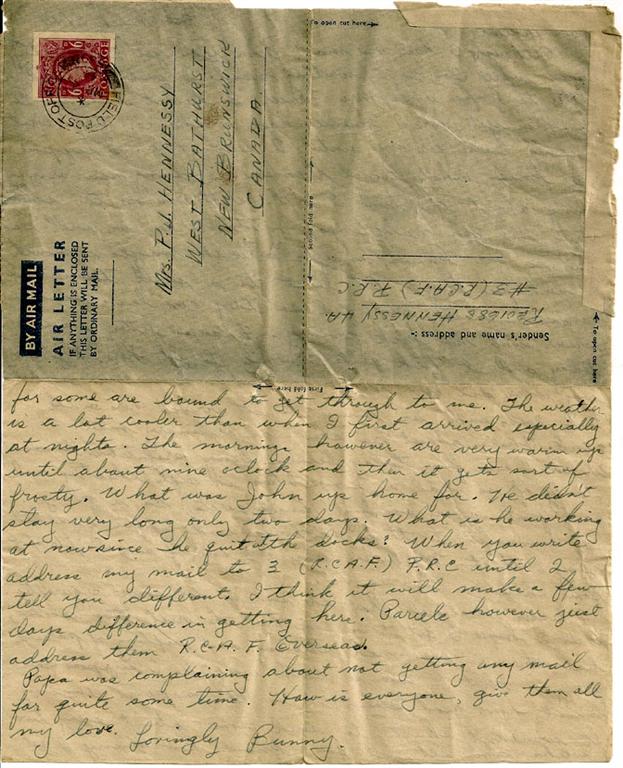 To open cut here
POSTAGE
FIELD POST OFFICE
BY AIR MAIL
AIR LETTER
IF ANYTHING IS ENCLOSED
THIS LETTER WILL BE SENT
BY ORDINARY MAIL.
Mrs. P.J. HENNESSY
WEST BATHURST
NEW BRUNSWICK
CANADA
Second fold here
Sender's name and address :-
HENNESSY
#3 (R.C.A.F.) P.R.C
To open cut here
First fold here
for some are bound to get through to me. The weather
is a lot cooler than when I first arrived especially
at nights. The mornings however are very warm up
until about nine oclock and then it gets sort of
frosty. What was John up home for. He didn't
stay very long only two days. What is he working
at now since he quit the docks? When you write
address my mail to 3 (R.C.A.F.) P.R.C until I
tell you different. I think it will make a few
days difference in getting here. Parcels however just
address them R.C.A.F. Overseas.
Papa was complaining about not getting any mail
for quite some time. How is everyone, give them all
my love. Lovingly Bunny.